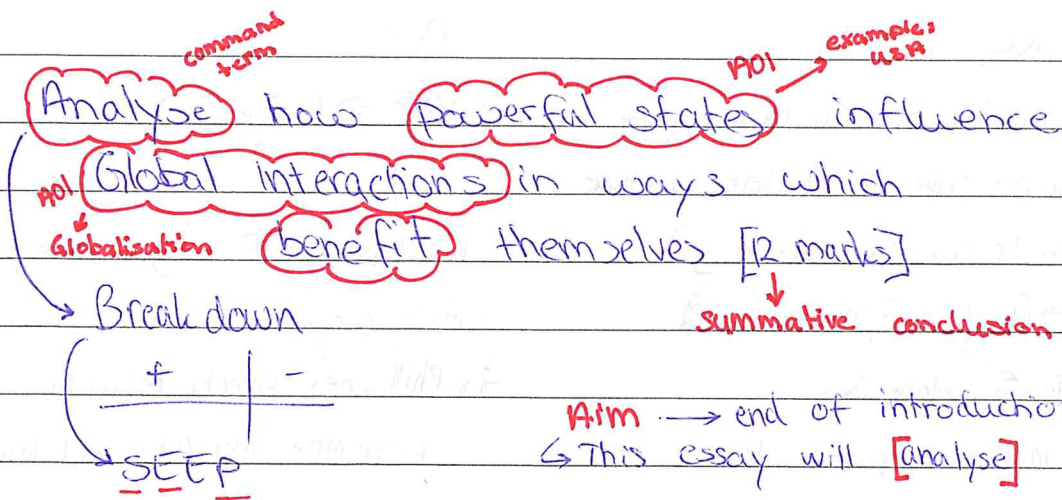 command term
examples USA
AO1
Analyse how powerful states influence
AO1 Global interactions in ways which
Globalisation benefit themselves [12 marks]
Breakdown
summative conclusion
+ -
Aim → end of introductio
SEEP
↳ This essay will [analyse]